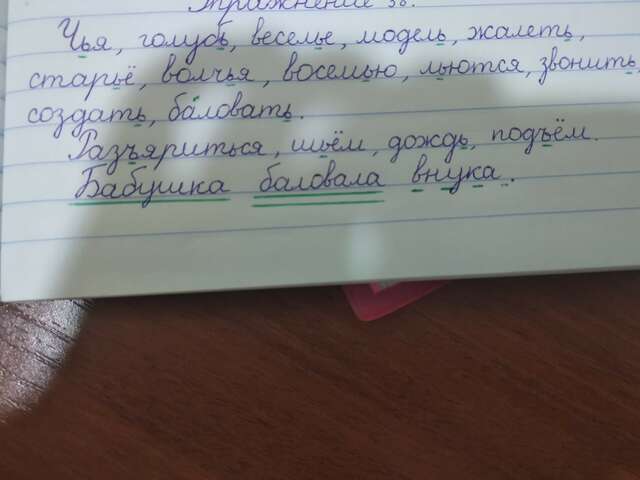 Упражнение 38.
Чья, голубь, веселье, модель, жалеть,
старьё, волчья, восемью, льются, звонить,
создать, баловать.
Разъяриться, шьём, дождь, подъём.
Бабушка баловала внука.